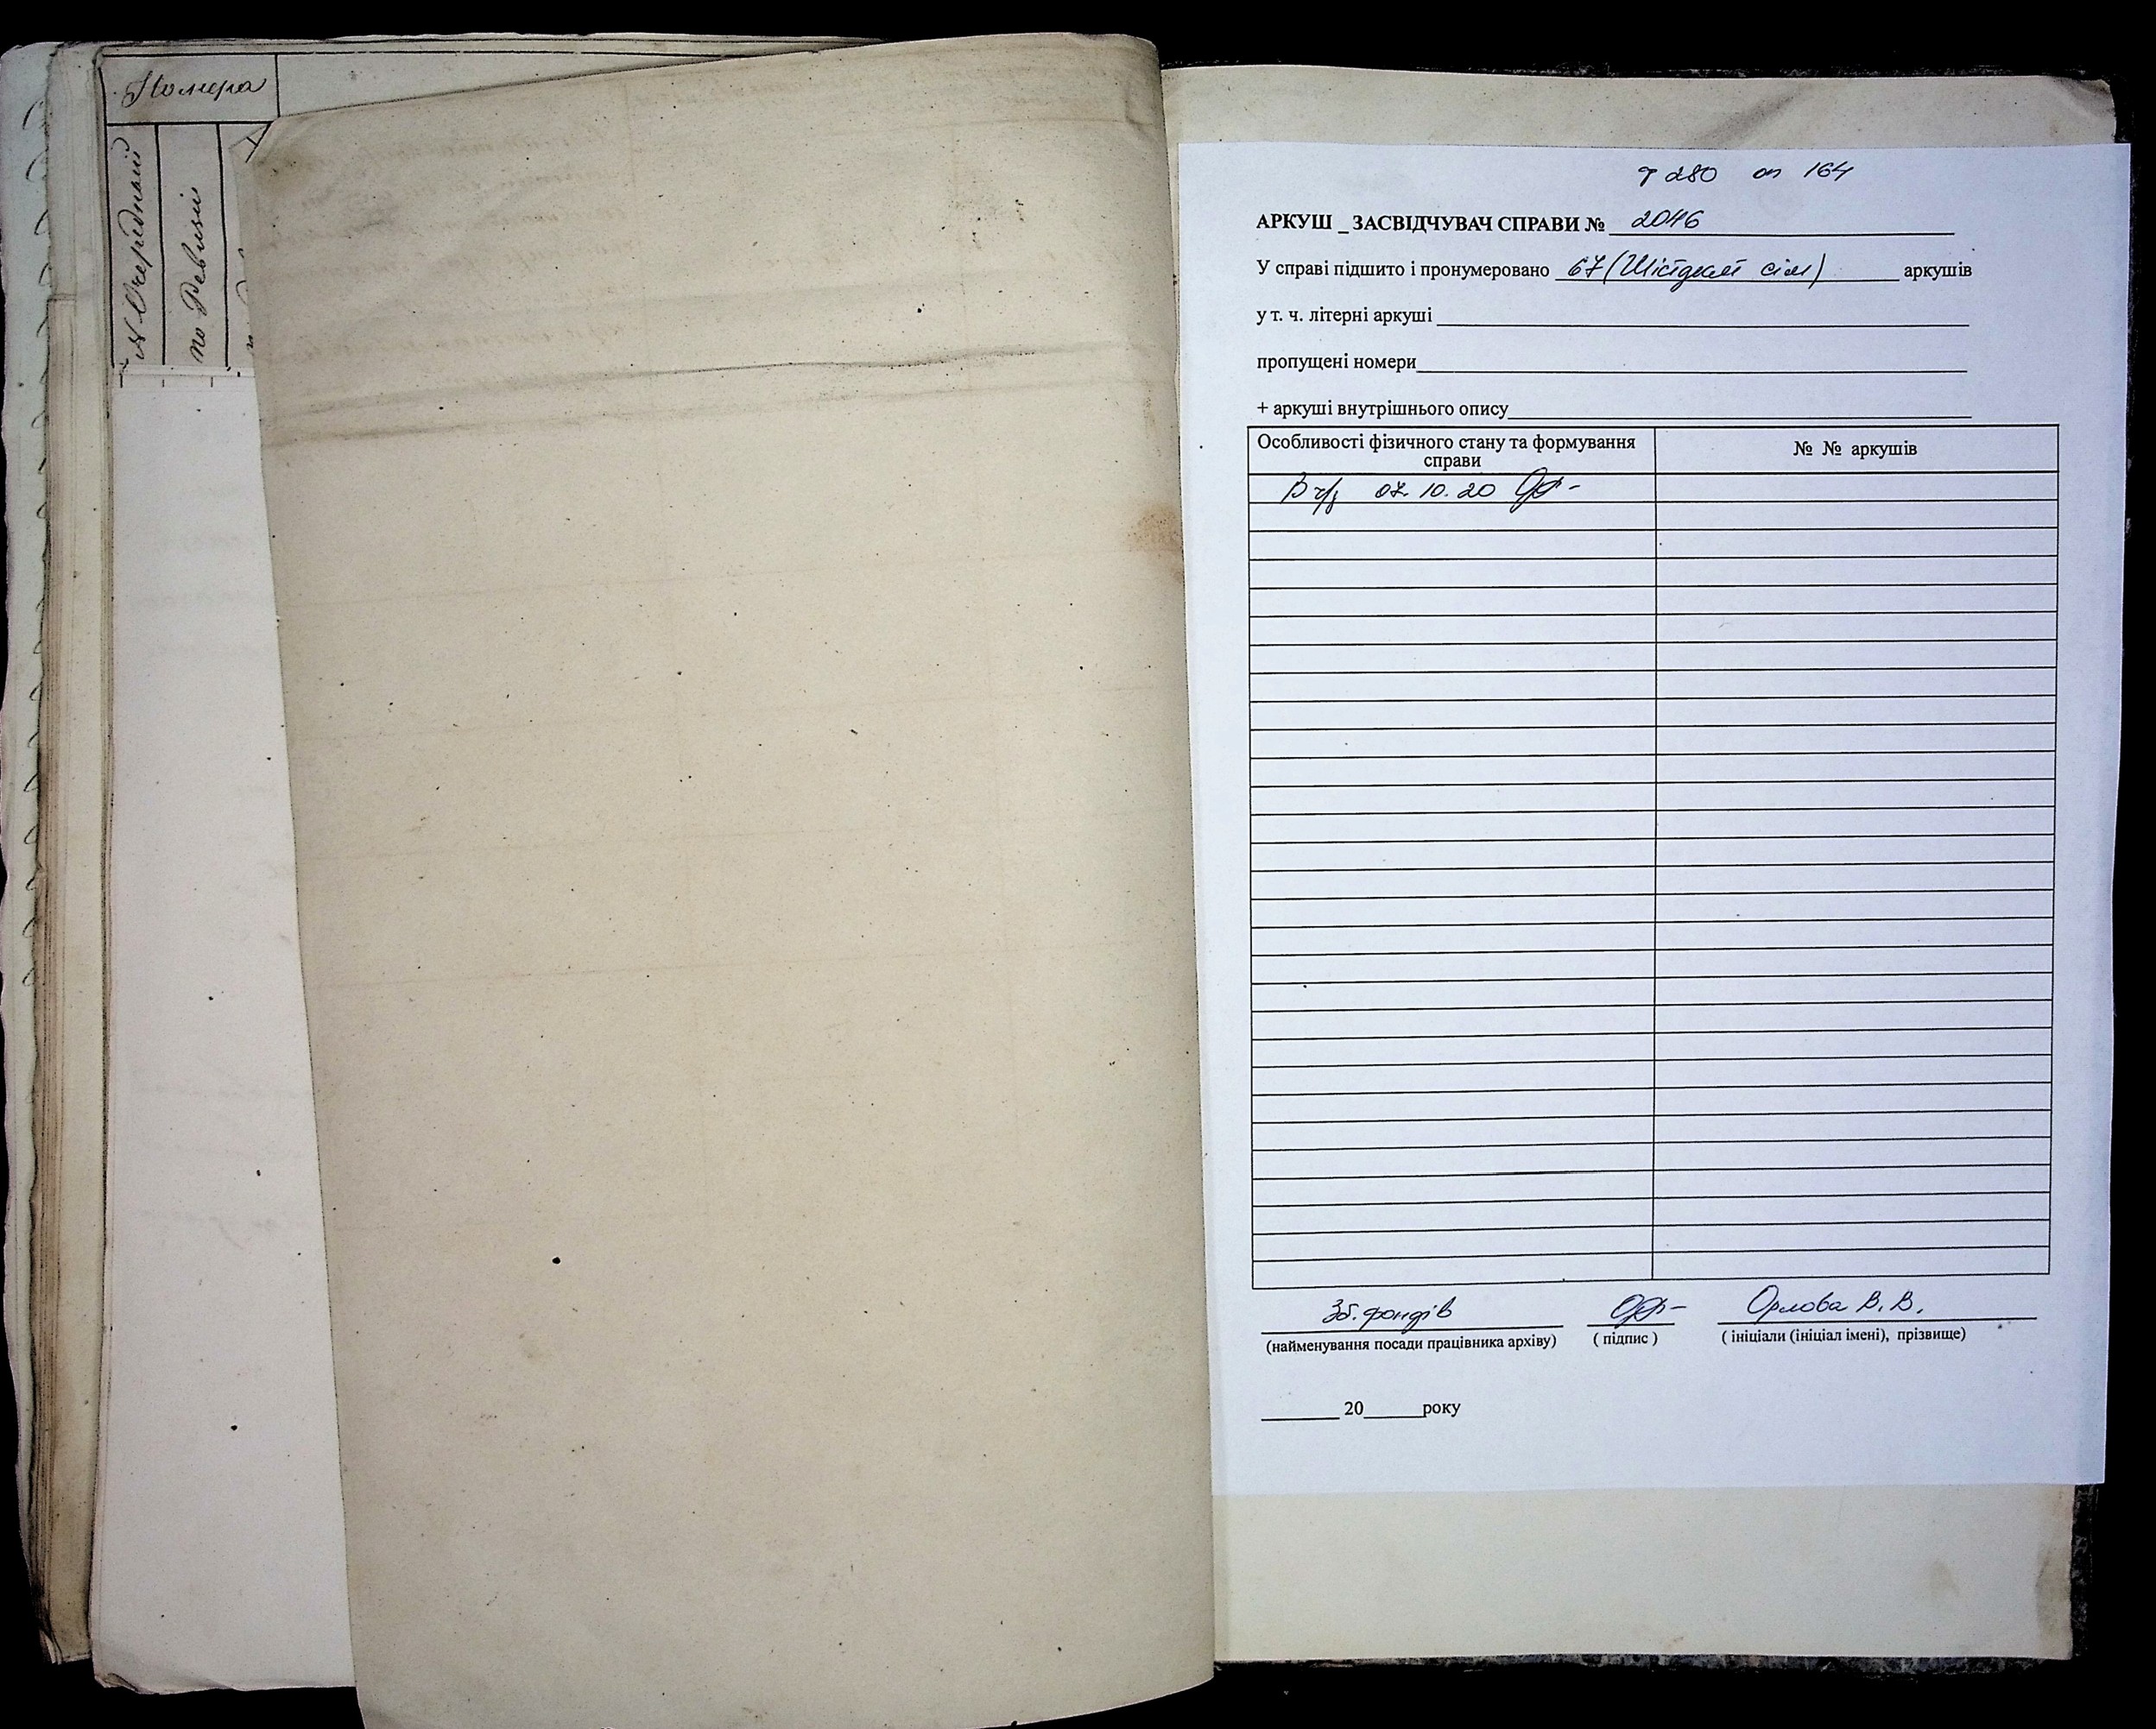 Номера
№ Очередный
по Ревизіи
ф 280 оп 164
АРКУШ _ ЗАСВІДЧУВАЧ СПРАВИ № 2046
У справі підшито і пронумеровано 67 (Шістдесят сім) аркушів
у т. ч. літерні аркуші
пропущені номери
+ аркуші внутрішнього опису
Особливості фізичного стану та формування справи
№ № аркушів
В ч/з 07.10.20
Зб. фондів
Орлова В. В.
(найменування посади працівника архіву) ( підпис ) ( ініціали (ініціал імені), прізвище)
20 року